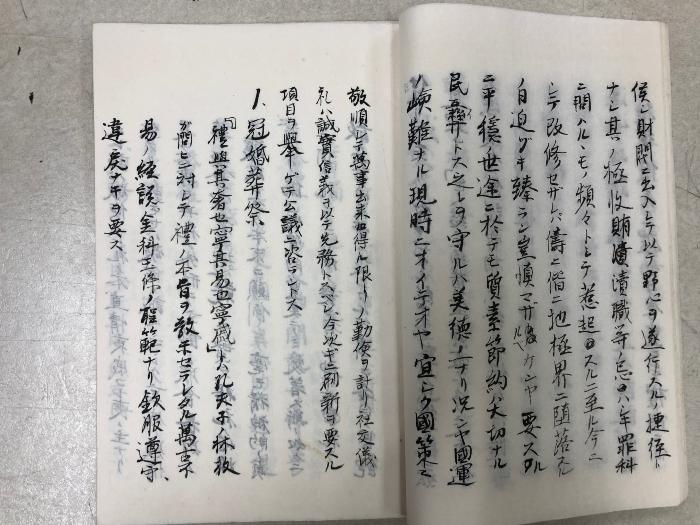 侯ノ財閥ニ出入シテ以テ野心ヲ遂行スルノ捷徑ト
ナシ其ノ極收賄瀆職等ノ忌ムベキ罪科
ニ問ハルヽモノ頻々トシテ惹起スルニ至ル今ニ
シテ改修セザレバ儕ニ偕ニ地極界ニ堕落スル
ノ日迫ダキ臻ラン豈慎マザルベケンヤ要スルニ
平穏ノ世途ニ於テモ質素節約ハ大切ナル
民彝トス之レヲ守ルハ美徳ノ一ナリ況ンヤ國運
ノ嶮難ナル現時ニオイテオヤ宜シク國策ニ
敬順シテ萬事出来得ル限リノ勤倹ヲ計リ社交儀
礼ハ誠實信義ヲ以テ先務トスベシ今次ギニ刷新ヲ要スル
項目ヲ舉ゲテ公議ニ咨ラントス
1、冠婚葬祭
『禮與其奢也寧其易也寧戚』トハ孔夫子林放
ガ問ヒニ対シテ禮ノ本旨ヲ教示セラレタル萬古不
易ノ經説金科玉條ノ聖範ナリ欽服遵守、
違戻ナキヲ要ス